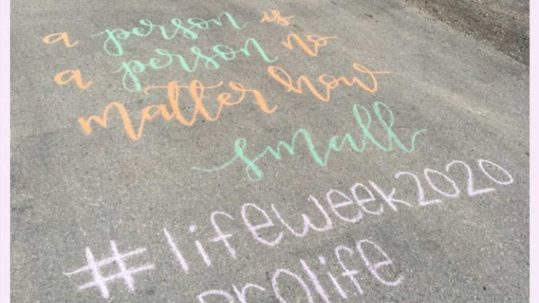 a person is
a person no
matter how
small
#lifeweek2020
prolife